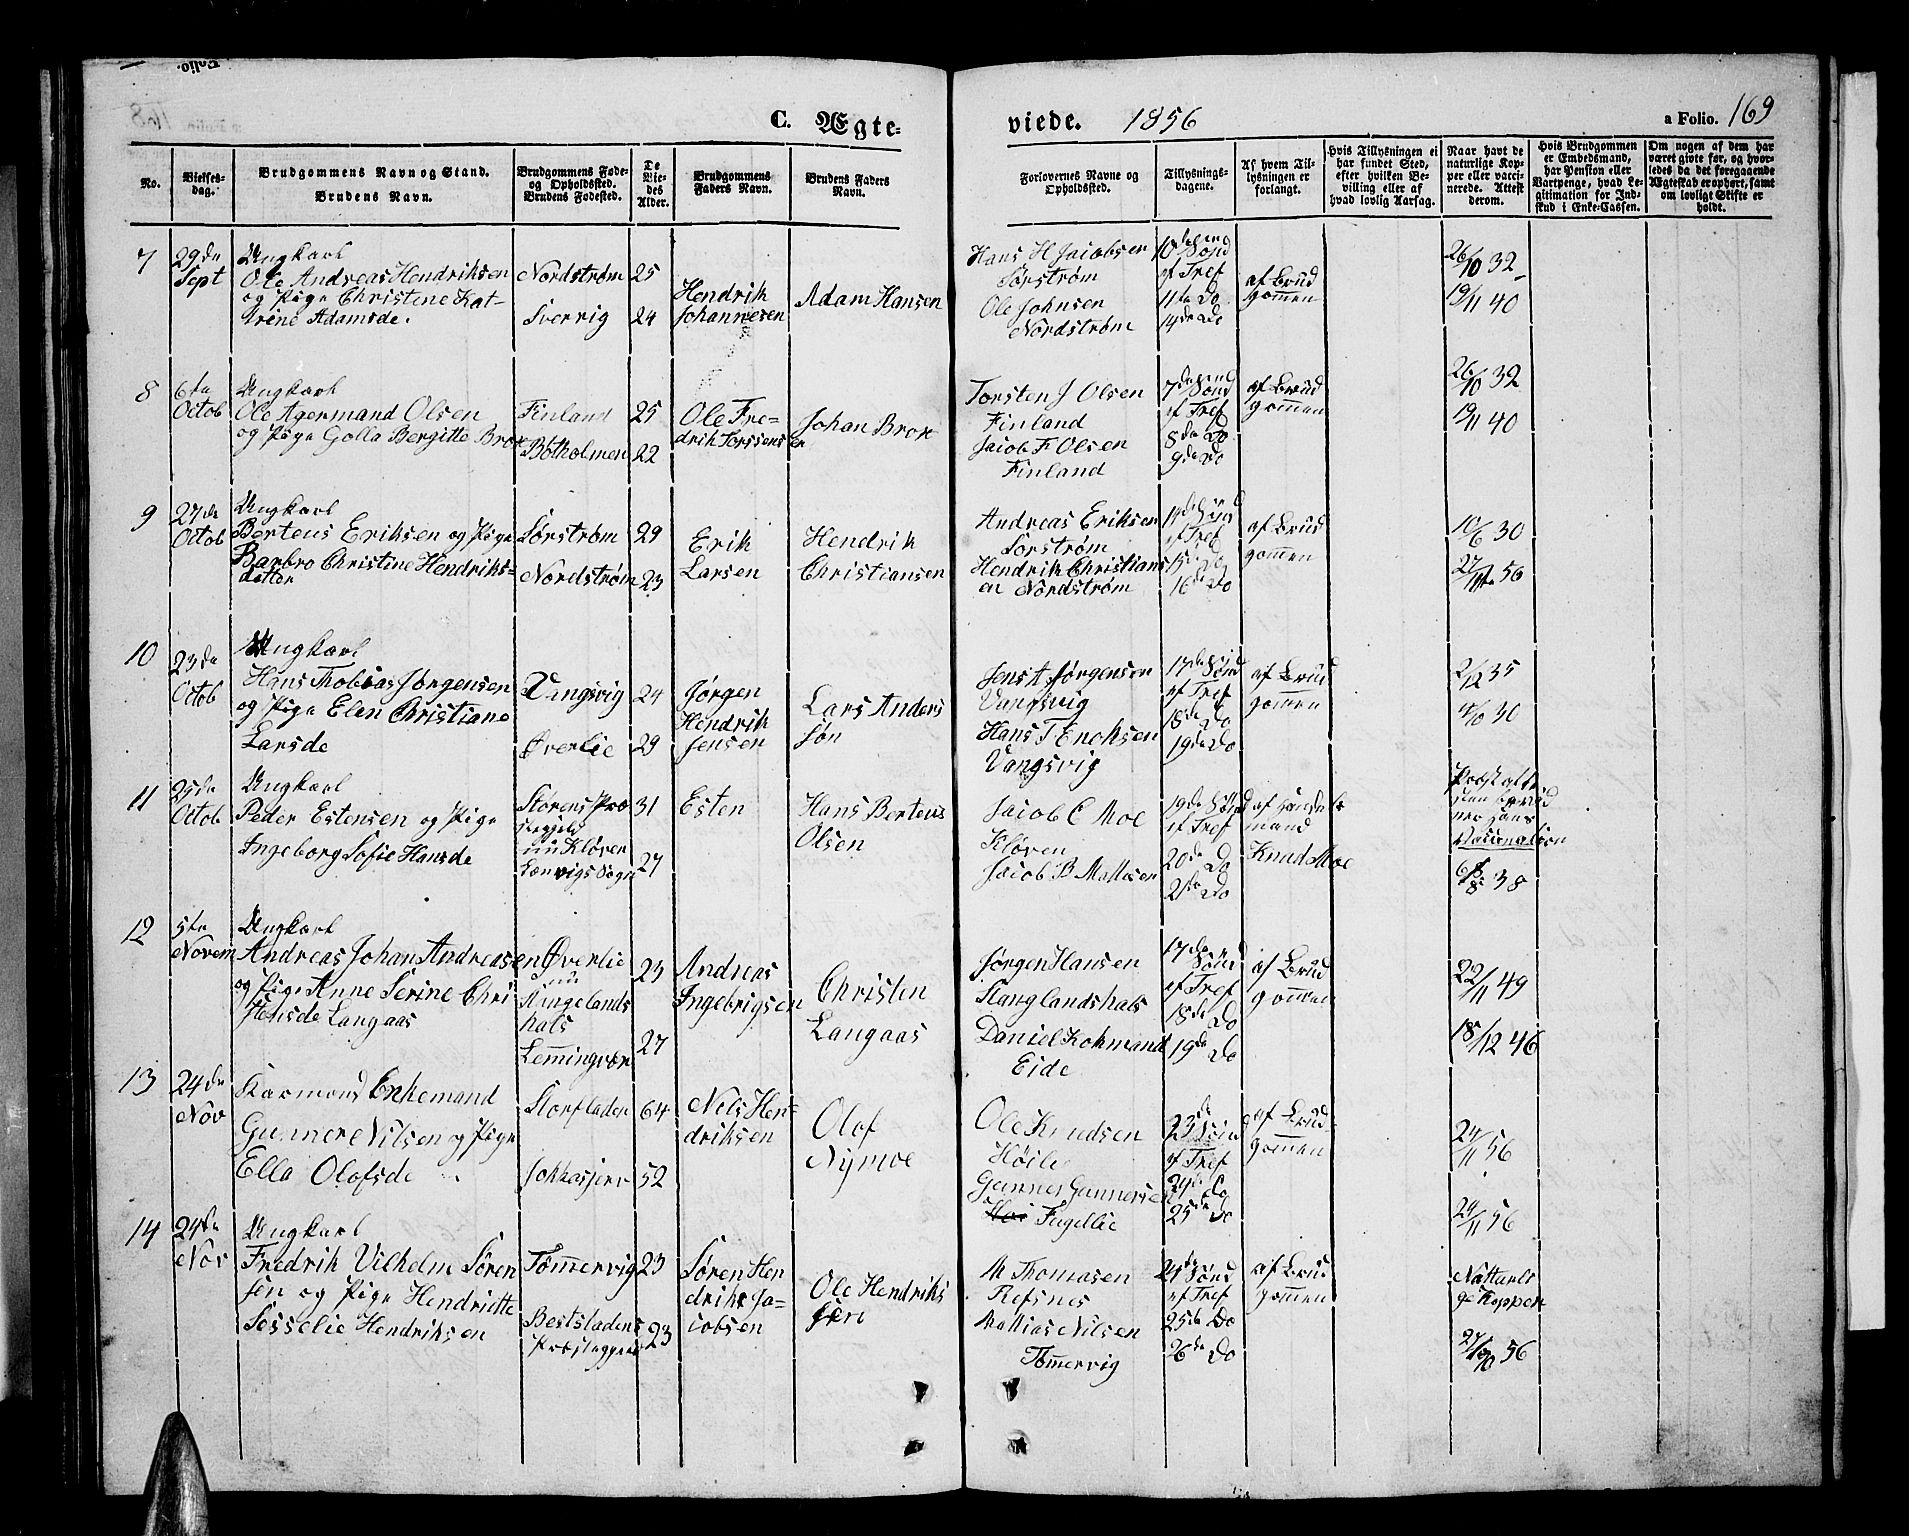 C. Ægte-
viede. 1856
a Folio. 169
No.
Vielses-
dag.
Brudgommens Navn og Stand.
Brudens Navn.
Brudgommens Føde-
og Opholdssted.
Brudens Fødested.
De
Vie-
des
Alder.
Brudgommens
Faders Navn.
Brudens Faders
Navn.
Forlovernes Navne og
Opholdssted.
Tillysnings-
dagene.
Af hvem Til-
lysningen er
forlangt.
Hvis Tillysningen ei
har fundet Sted,
efter hvilken Be-
villing eller af
hvad lovlig Aarsag.
Naar havt de
naturlige Kop-
per eller vacci-
nerede. Attest
derom.
Hvis Brudgommen
er Embedsmand,
har Pension eller
Vartpenge, hvad Le-
gitimation for Ind-
skud i Enke-Cassen.
Om nogen af dem har
været givte før, og hvor-
ledes da det foregaaende
Ægteskab er ophørt, samt
om lovligt Skifte er
holdt.
7
29de
Sept
Ungkarl
Ole Andreas Hendriksen
og Pige Christine Kat-
rine Adamsde.
Nordstrøm
Sverrig
25
24
Hendrik
Johannesen
Adam Hansen
Hans H Jacobsen
Sørstrøm
Ole Johnsen
Nordstrøm
10de Sønd
ef Tref
11te Do
14de Do
af Brud
gommen
26/10 32
19/11 40
8
6te
Octob
Ungkarl
Ole Agermand Olsen
og Pige Golla Bergitte Brox
Finland
Botholmen
25
22
Ole Fre-
drik Torssensen
Johan Brox
Torsten J Olsen
Finland
Jacob F Olsen
Finland
7de Sønd
ef Tref
8de Do
9de Do
af Brud
gommen
26/10 32
19/11 40
9
27de
Octob
Ungkarl
Berteus Eriksen og Pige
Barbro Christine Hendriks-
datter
Sørstrøm
Nordstrøm
29
23
Erik
Larsen
Hendrik
Christiansen
Andreas Eriksen
Sørstrøm
Hendrik Christians
en Nordstrøm
ef Tref
15de Do
16de Do
af Brud
gommen
10/6 30
10
23de
Octob
Ungkarl
Hans Thobias Jørgensen
og Pige Elen Christiane
Larsde
Vangsvig
Øverlie
24
29
Jørgen
Hendrik
Jensen
Lars Anders
søn
Jens A Jørgensen
Vangsvig
Hans T Enoksen
Vangsvig
17de Sønd
ef Tref
18de Do
19de Do
af Brud
gommen
2/12 35
11
25de
Octob
Ungkarl
Peder Estensen og Pige
Ingeborg Sofie Hansde
Storens Præ
stegjeld
nu Kløven
Lenvigs Sogn
31
27
Esten
Hans Berteus
Olsen
Jacob C Moe
Kløven
Jacob B Matisen
19de Sønd
ef Tref
20de Do
21de Do
af Handels
mand
Knud Moe
12
5te
Novem
Ungkarl
Andreas Johan Andreasen
og Pige Anne Serine Chri
stensde Langaas
Øverlie
nu
hals
Lemmingvær
23
27
Andreas
Ingebrigsen
Christen
Langaas
Jørgen Hansen
Stanglandshals
Daniel Kohmand
Eide
17de Sønd
ef Tref
18de Do
19de Do
af Brud
gommen
22/11 49
18/12 46
13
24de
Nov
Enkemand
Gunner Nilsen og Pige
Ella Olofsde
Storfladen
64
52
Nils Hen-
driksen
Olof
Nymoe
Ole Knudsen
Gunner Gunnersen
Fugellie
23de Sønd
ef Tref
24de Do
25de Do
af Brud
gommen
24/11 56
24/11 56
14
24de
Nov
Ungkarl
Fredrik Vilhelm Søren
sen og Pige Hendritte
Sesselie Hendriksen
Tømmervig
23
23
Søren Hen
drik Ja-
cobsen
Ole Hendriks
M Thomasen
Refsnes
Mattias Nilsen
Tømmervig
24de Sønd
ef Tref
25de Do
26de Do
af Brud
gommen
Natturli
ge Kopper